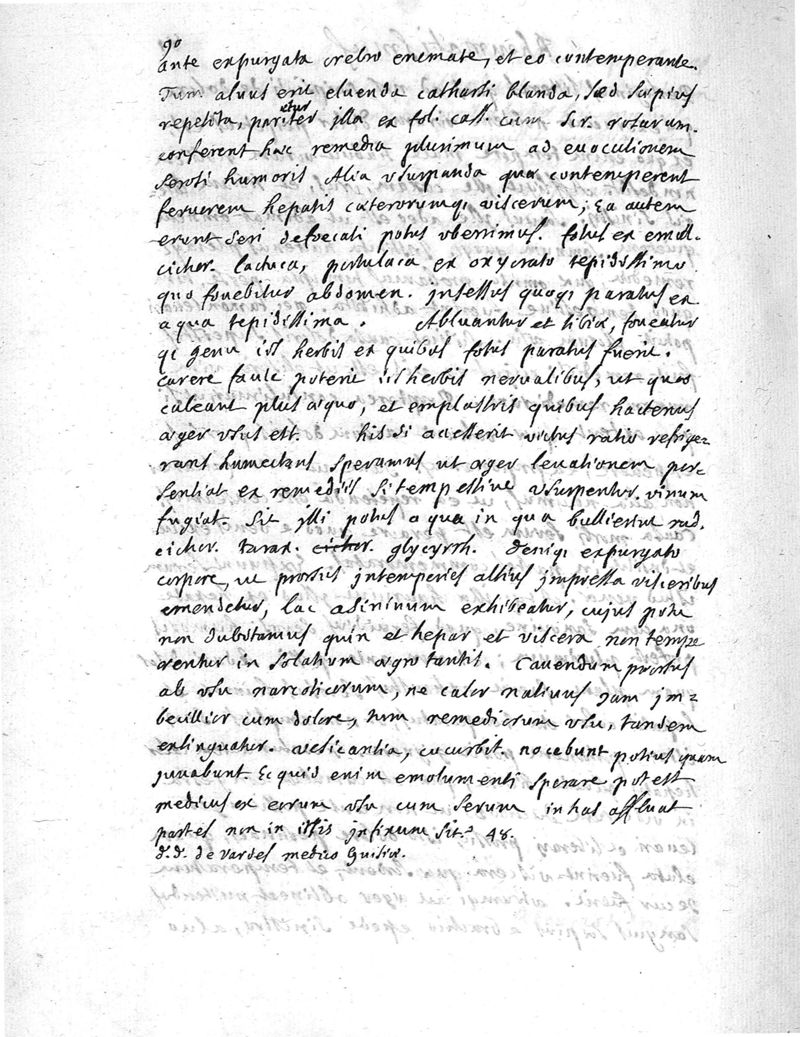 90
ante expurgata crebro enemate, et eo contemperante.
Tum alvus erit eluenda catharti blanda, sæd sæpius
repetita, pariter illa ex fol. cass. cum sir. rosarum.
conferent hæc remedia plurimum ad evocutionem
serosi humoris Alia usurpanda quæ contemperent
fervorem hepatis cæterorumqi viscerum; Ea autem
erunt seri defoecati potus uberrimus. fotus ex emoll.
cichor. lactuca, portulaca ex oxycrato tepidissimo
quo fovebitur abdomen. jnsessus quoqi paratus ex
aqua tepidissima. Abluantur et tibiæ, foveatur
qi genu iisd herbis ex quibus fotus paratus fuerit.
carere facile poterit iis herbis nervalibus, ut quæ
caleant plus æquo, et emplastris quibus hactenus
æger usus est. his si accesserit victus ratio refrige=
rans humectans speramus ut æger levationem per=
sentiat ex remediis si tempestive usurpentur. vinum
fugiat. Sit illi potus aqua in qua bullierint rad.
cichor. tarax. cichor. glycyrrh. deniqi expurgato
corpore, ut prorsus jntemperies altius jmpressa visceribus
emendetur, lac asininum exhibeatur, cujus potu
non dubitamus quin et hepar et viscera non tempe
rentur in solatium ægrotantis. Cavendum prorsus
ab usu narcoticorum, ne calor nativus jam jm=
becillior cum dolore, tum remediorum usu, tandem
extinguatur. vesicantia, cucurbit. nocebunt potius quam
juvabunt. Ecquid enim emolumenti sperare potest
medicus ex eorum usu cum serum in has affluat
partes non in istis jnfixum sit. 48.
d. d. de vardes medico Guisiæ.